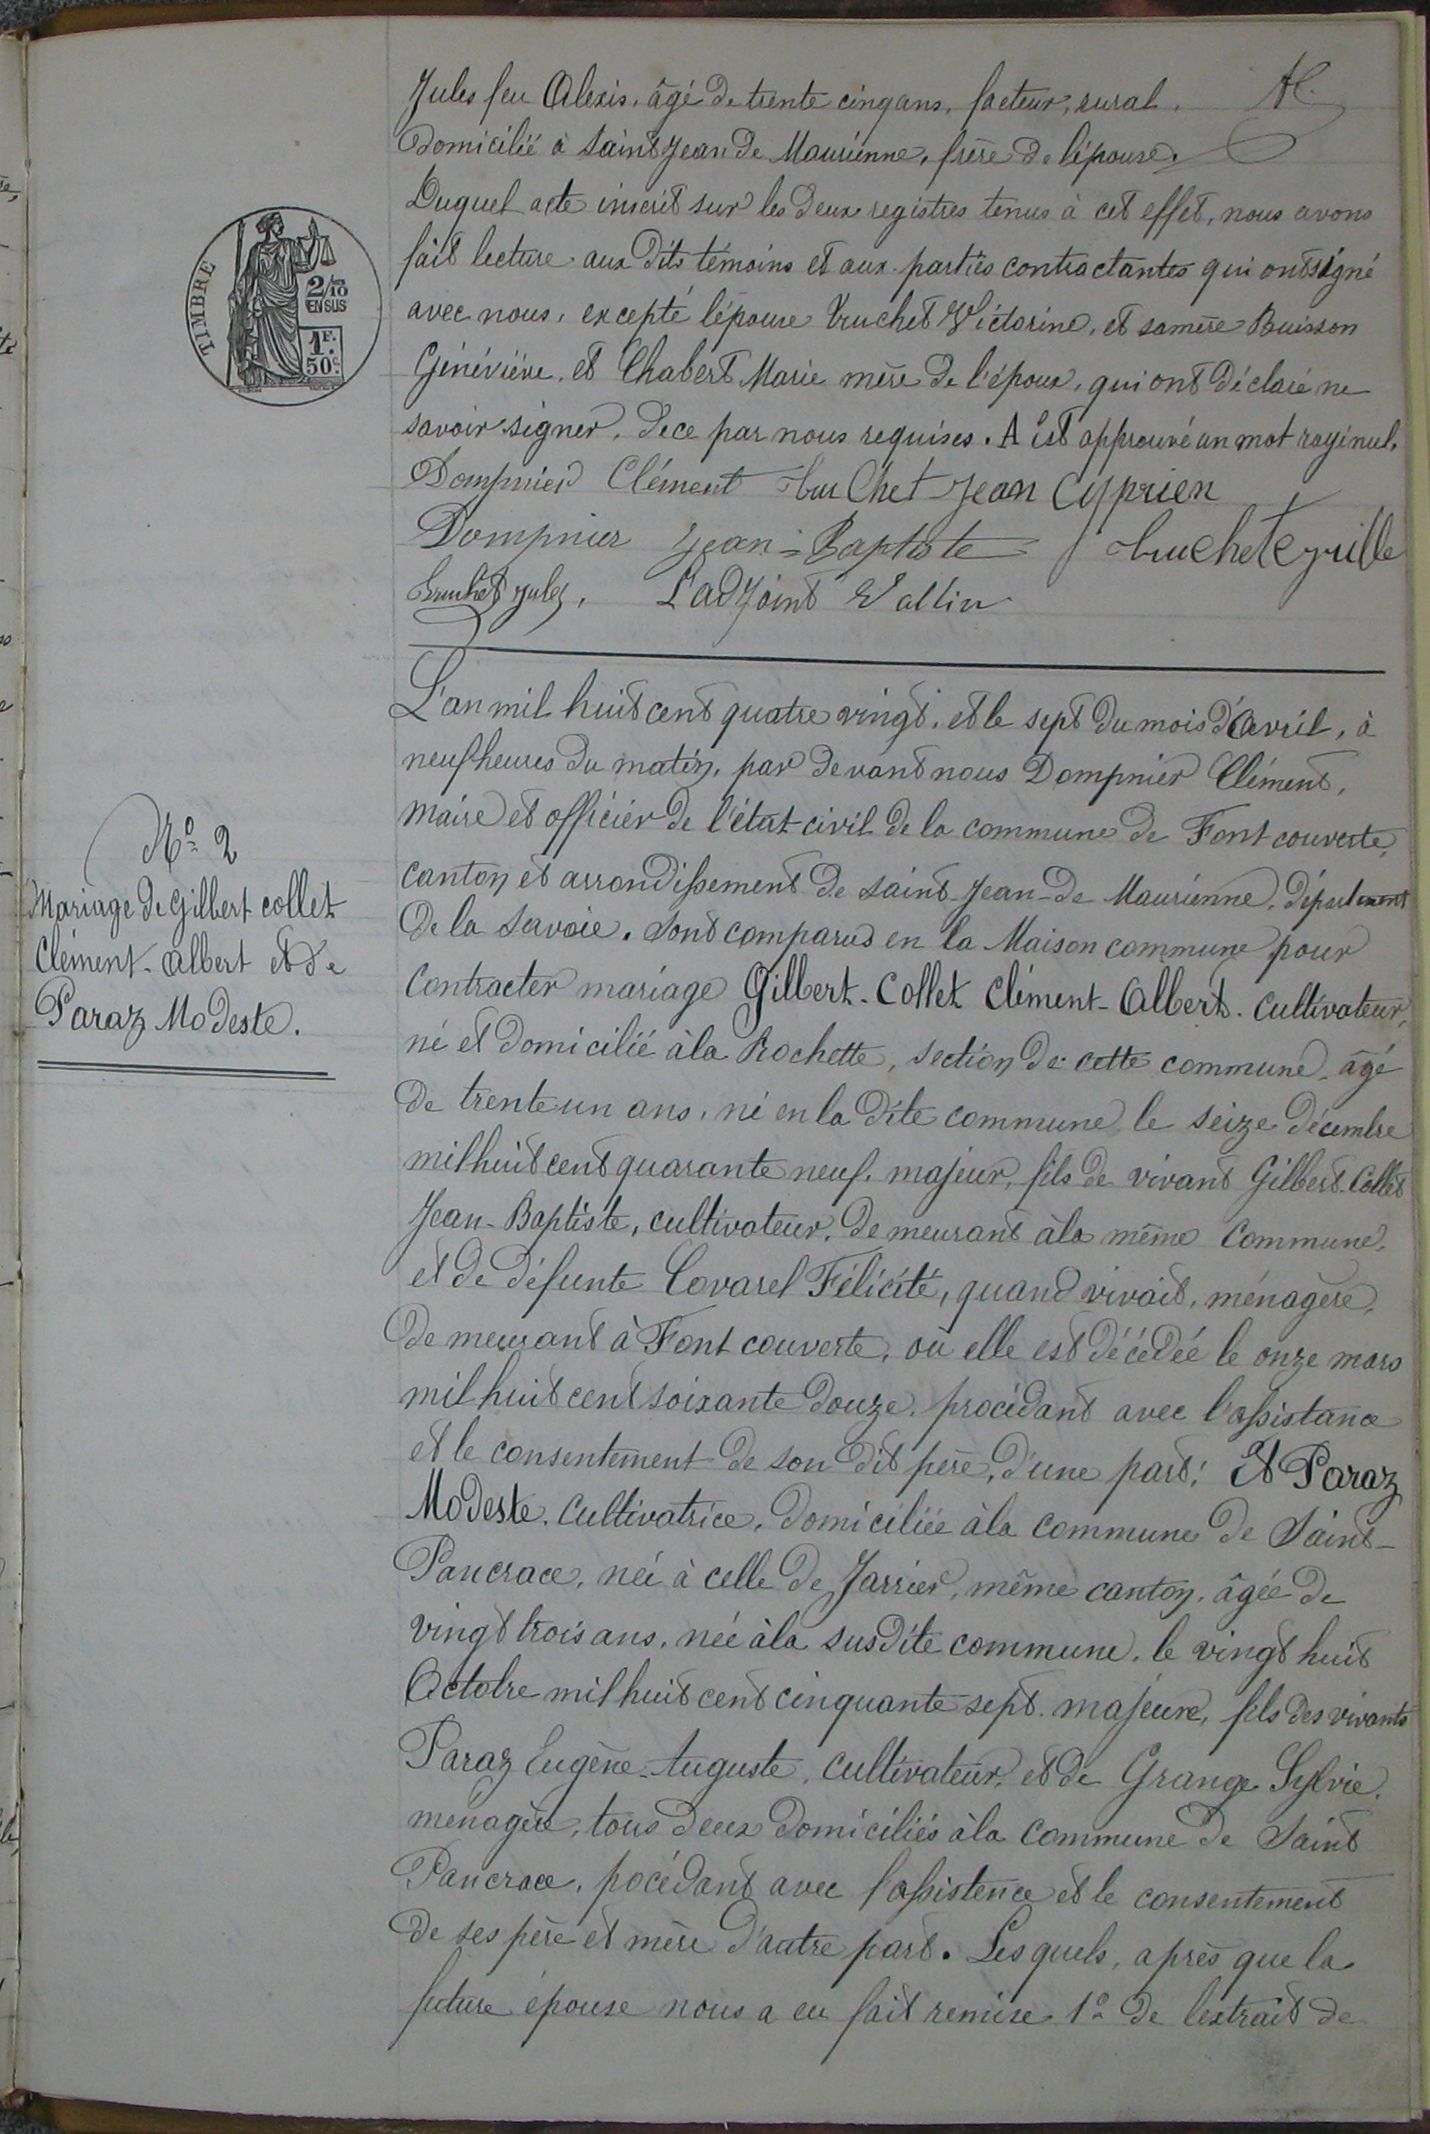 Jules feu Alexis, âgé de trente cinq ans, facteur, rural,
Domicilié à Saint Jean de Maurienne, frère de l'épouse.
Duquel acte inscrit sur les deux registres tenus à cet effet, nous avons
fait lecture aux dits témoins et aux parties contractantes qui ont signé
avec nous, excepté l'épouse Truchet Victorine, et sa mère Buisson
Génévière, et Chabert Marie mère de l'époux, qui ont déclaré ne
savoir signer, de ce par nous requises. A est approuvé un mot rayé nul.
Dompnier Clément truchet Jean Cyprien
Dompnier Jean=Baptiste truchet Cyrille
Truchet Jules, L'adjoint Vallin
TIMBRE
2/10
EN SUS
1F.
50c.
L'an mil huit cent quatre vingt, et le sept du mois d'avril, à
neuf heures du matin, par devant nous Dompnier Clément,
maire et officier de l'état civil de la commune de Fontcouverte,
canton et arrondissement de Saint-Jean-de Maurienne, département
de la Savoie. Sont comparus en la Maison commune pour
contracter mariage Gilbert-Collet Clément-Albert. cultivateur,
né et domicilié à la Rochette, section de cette commune, âgé
de trente un ans, né en la dite commune, le seize décembre
mil huit cent quarante neuf, majeur, fils de vivant Gilbert-Collet
Jean-Baptiste, cultivateur, demeurant à la même commune,
et de défunte Covarel Félicité, quand vivait, ménagère,
demeurant à Fontcouverte, où elle est décédée le onze mars
mil huit cent soixante douze, procédant avec l'assistance
et le consentement de son dit père, d'une part; Et Paraz
Modeste, cultivatrice, domiciliée à la commune de Saint-
Pancrace, née à celle de Jarrier, même canton, âgée de
vingt trois ans, née à la susdite commune, le vingt huit
Octobre mil huit cent cinquante sept, majeure, fils des vivants
Paraz Eugène-Auguste, cultivateur, et de Grange Sylvie,
ménagère, tous deux domiciliés à la commune de Saint
Pancrace, pocédant avec l'assistence et le consentement
de ses père et mère d'autre part. Lesquels, après que la
future épouse nous a eu fait remise 1º de l'extrait de
Nº 2
Mariage de Gilbert collet
Clément-Albert et de
Paraz Modeste.